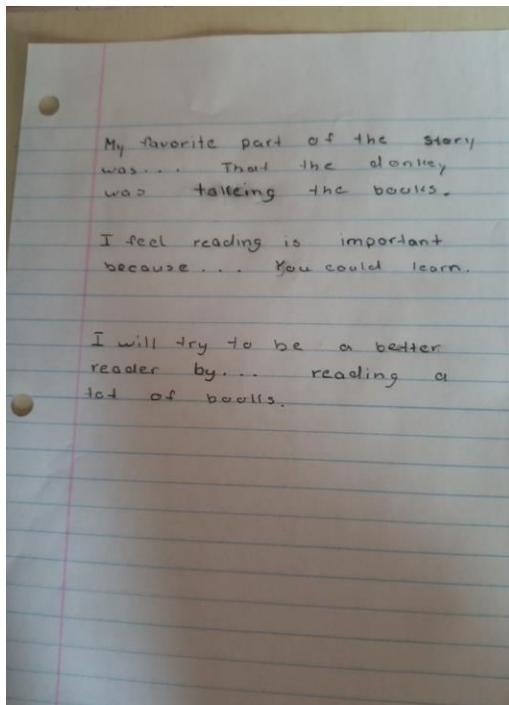 My favorite part of the story
was... That the donkey
was talking the books.
I feel reading is important
because... You could learn.
I will try to be a better
reader by... reading a
lot of books.